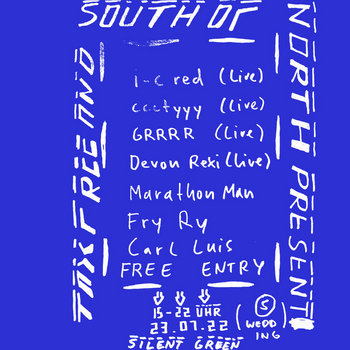 TAX FREE AND
SOUTH OF
NORTH PRESENT
i-c red (Live)
cectyyy (Live)
GRRRR (Live)
Devon Rexi (Live)
Marathon Man
Fry Ry
Carl Luis
FREE ENTRY
15-22 UHR
23.07.22
(S WEDDING)
SILENT GREEN